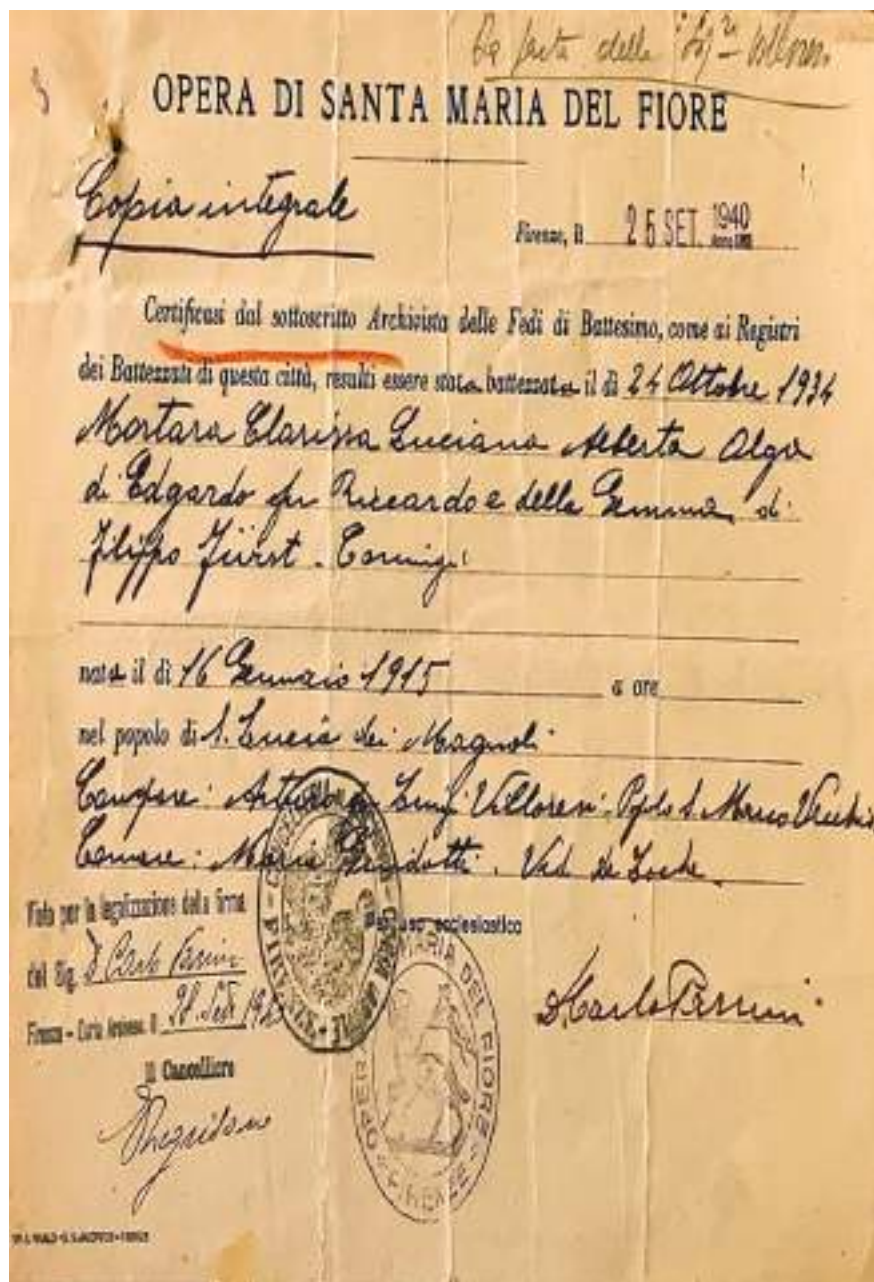 OPERA DI SANTA MARIA DEL FIORE
Copia integrale
Firenze, li 25 SET. 1940
Certificasi dal sottoscritto Archivista delle Fedi di Battesimo, come ai Registri
dei Battezzati di questa città, resulti essere stata battezzata il dì 24 Ottobre 1934
Mortara Clarissa Luciana Alberta Olga
di Edgardo fu Riccardo e della Gemma di
Filippo Fürst. Coniugi
nata il dì 16 Gennaio 1915 a ore
nel popolo di S. Lucia dei Magnoli
Compare: Arturo di Luigi Villoresi. Poplo S. Marco Vecchio
Comare: Maria Ved.
Visto per la legalizzazione della firma
Per uso ecclesiastico
del Sig. D. Carlo
D. Carlo
Firenze - Curia Arcives. li 28. Sett.
Il Cancelliere
OPERA MARIA DEL FIORE - FIRENZE